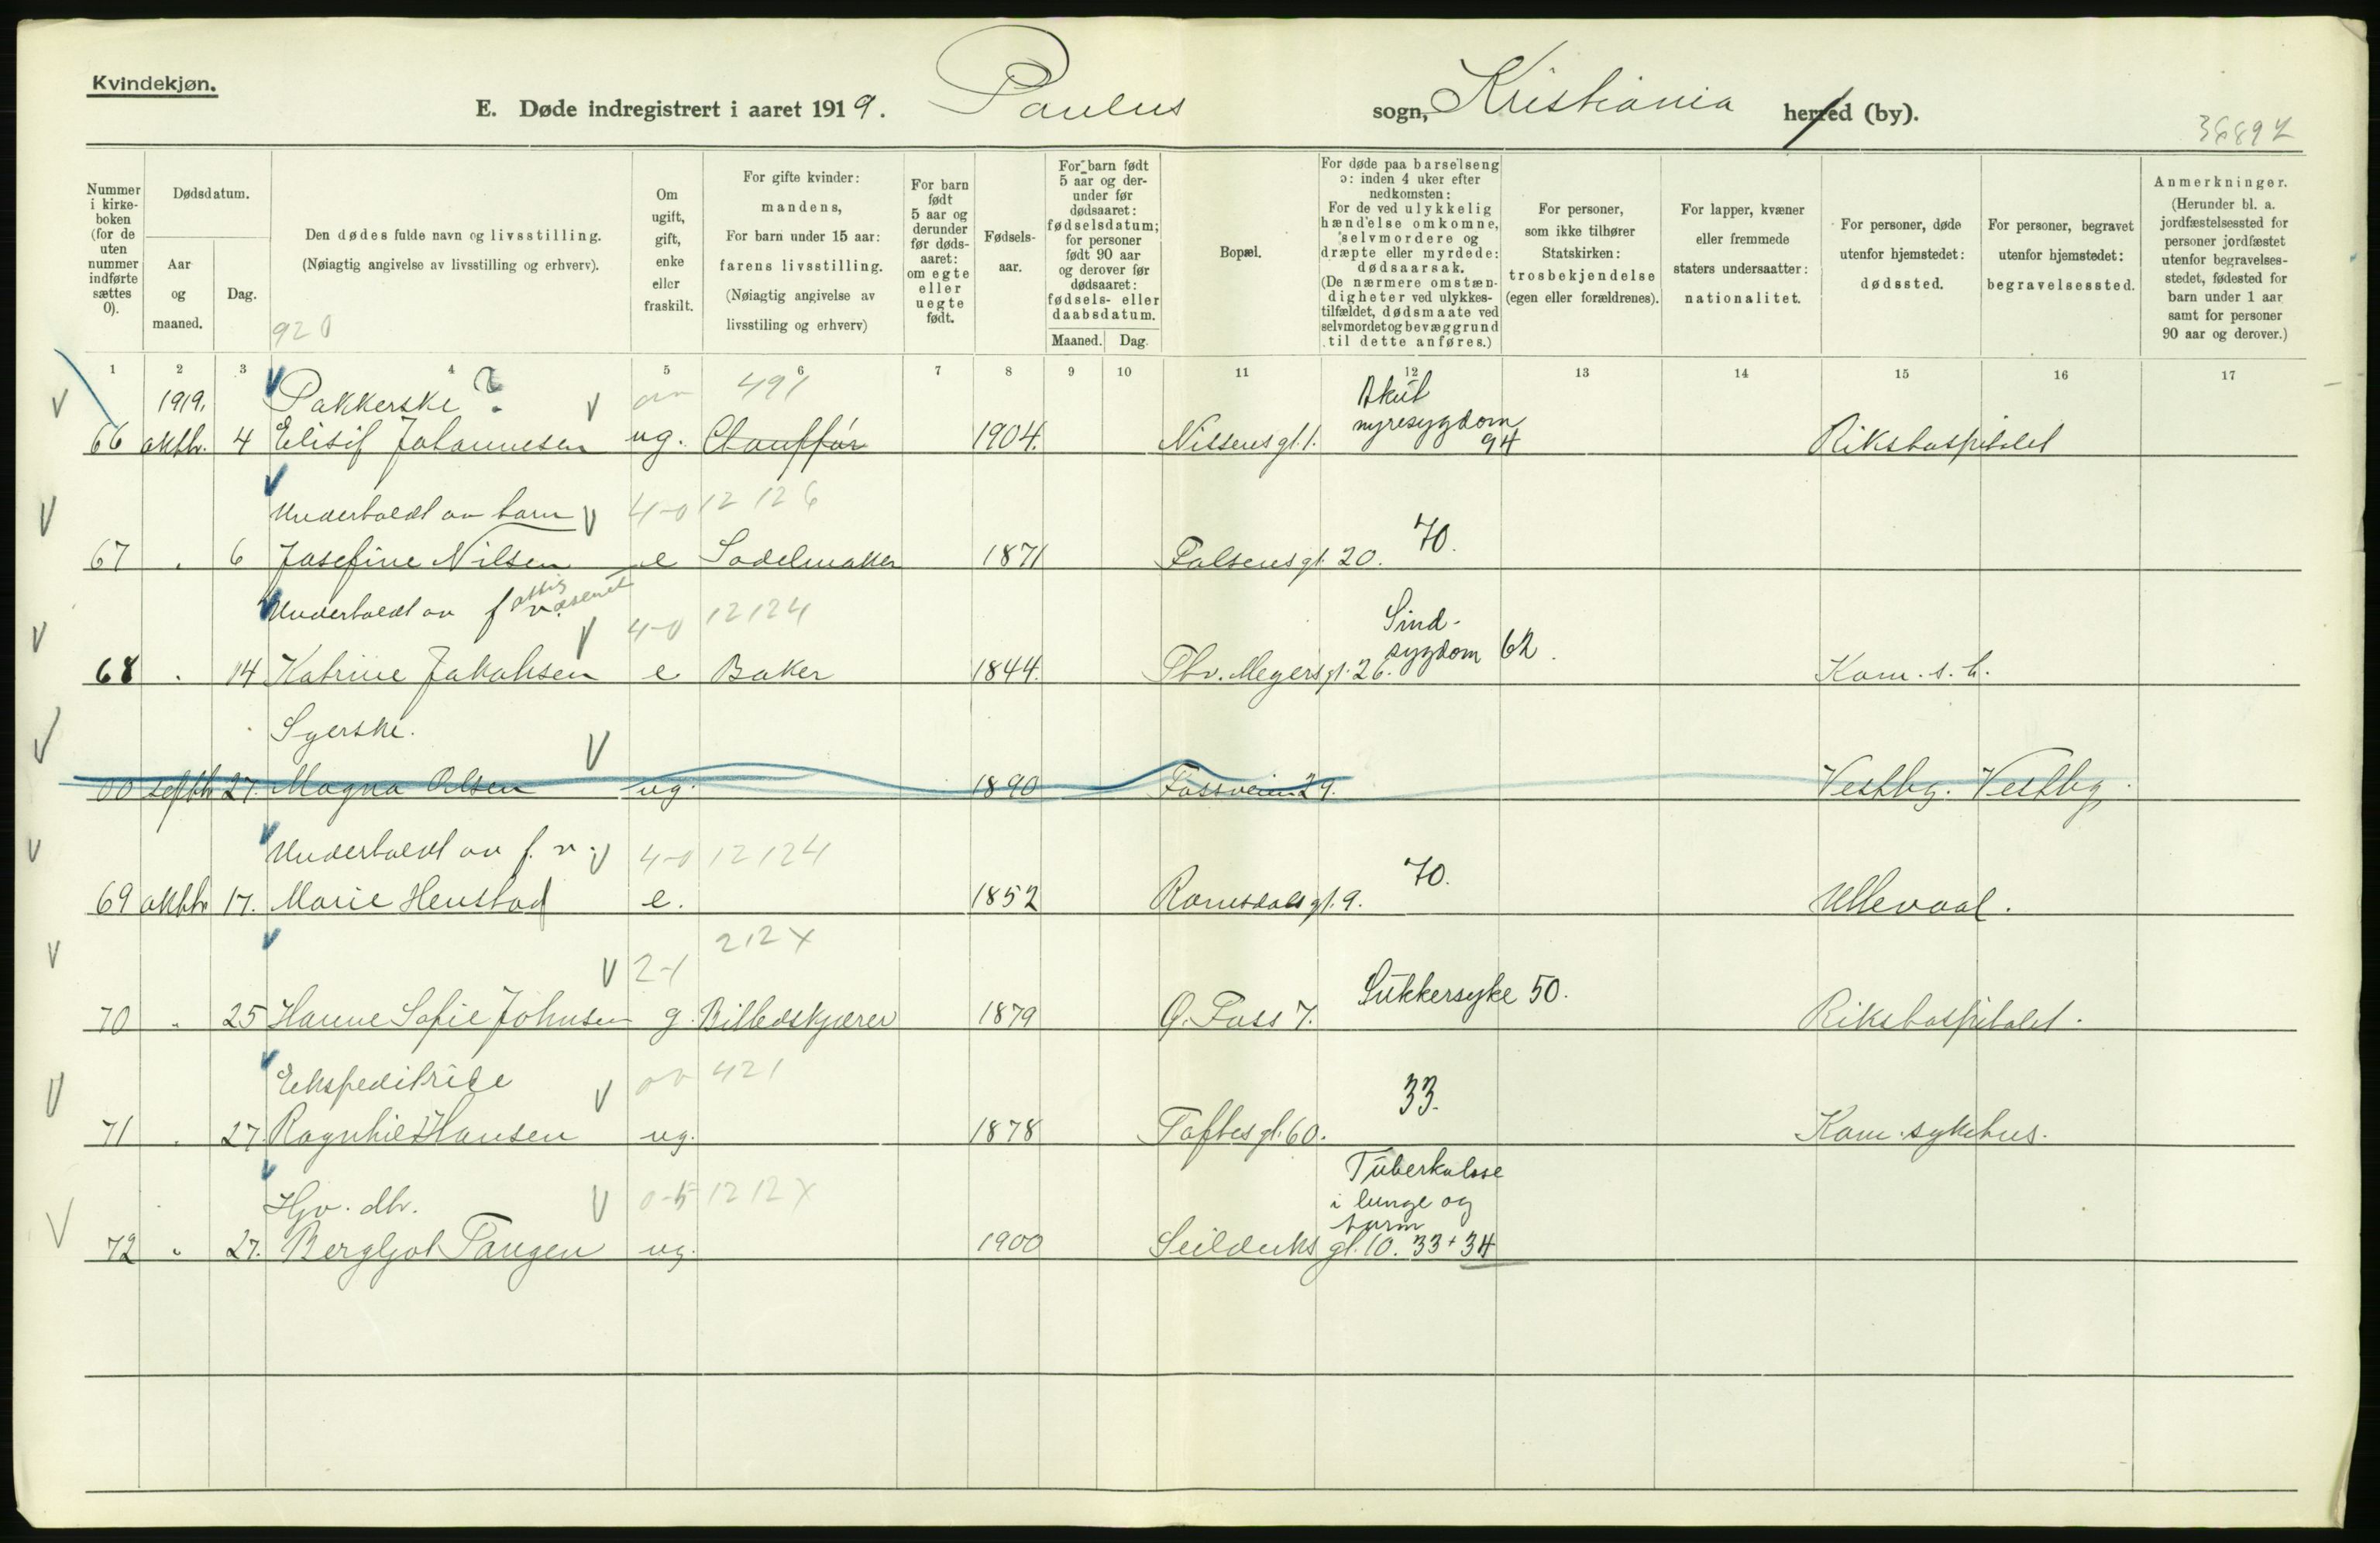 Kvindekjøn.
E. Døde indregistrert i aaret 1919. Paulus sogn, Kristiania herred (by).
36892
Nummer i kirkeboken (for de uten nummer indførte sættes 0).
Dødsdatum.
Aar og maaned.
Dag.
Den dødes fulde navn og livsstilling.
(Nøiagtig angivelse av livsstilling og erhverv).
920
Om ugift, gift, enke eller fraskilt.
For gifte kvinder: mandens, For barn under 15 aar: farens livsstilling. (Nøiagtig angivelse av livsstiling og erhverv)
For barn født 5 aar og derunder før dødsaaret: om egte eller uegte født.
Fødselsaar.
For barn født 5 aar og derunder før dødsaaret: fødselsdatum; for personer født 90 aar og derover før dødsaaret: fødsels- eller daabsdatum.
Maaned. Dag.
Bopæl.
For døde paa barselseng ɔ: inden 4 uker efter nedkomsten: For de ved ulykkelig hændelse omkomne, selvmordere og dræpte eller myrdede: dødsaarsak. (De nærmere omstændigheter ved ulykkestilfældet, dødsmaate ved selvmordet og bevæggrund til dette anføres.)
For personer, som ikke tilhører Statskirken: trosbekjendelse (egen eller forældrenes).
For lapper, kvæner eller fremmede staters undersaatter: nationalitet.
For personer, døde utenfor hjemstedet: dødssted.
For personer, begravet utenfor hjemstedet: begravelsessted.
Anmerkninger. (Herunder bl. a. jordfæstelsessted for personer jordfæstet utenfor begravelsesstedet, fødested for barn under 1 aar samt for personer 90 aar og derover.)
1 2 3 4 5 6 7 8 9 10 11 12 13 14 15 16 17
1919. Pakkerske ? 491 Akut nyresygdom 94
66 oktbr. 4 Elisif Johannesen ug. Chauffør 1904. Nissensgt. 1. Rikshospitalet
Underholdt av barn 4-0 12 126
67 . 6 Josefine Nilsen e Sadelmaker 1871 Falsensgt. 20. 70.
Underholdt av fattigvæsenet 4-0 12124 Sindsygdom 62.
68 . 14 Katrine Jakobsen e Baker 1844. Thv. Meyersgt. 26. Kom. s. h.
Syerske.
00 septbr 27. Magna Olsen ug. 1890 Fossveien 29. Vestby. Vestby.
Underholdt av f. v. 4-0 12124
69 oktbr 17. Marie Henstad e. 1852 Romsdalsgt. 9. 70. Ullevaal.
2-1 212X
70 " 25 Hanne Sofie Johnsen g. Billedskjærer 1879 Ø. Foss 7. Sukkersyke 50. Rikshospitalet.
Ekspeditrice 421
71 . 27. Ragnhild Hansen ug. 1878 Toftesgt. 60. 33. Kom. sykehus.
Hjv. dtr. 0-5 1212X Tuberkulose i lunge og tarm
72 " 27. Bergljot Tangen ug. 1900 Seilduksgt. 10. 33 + 34